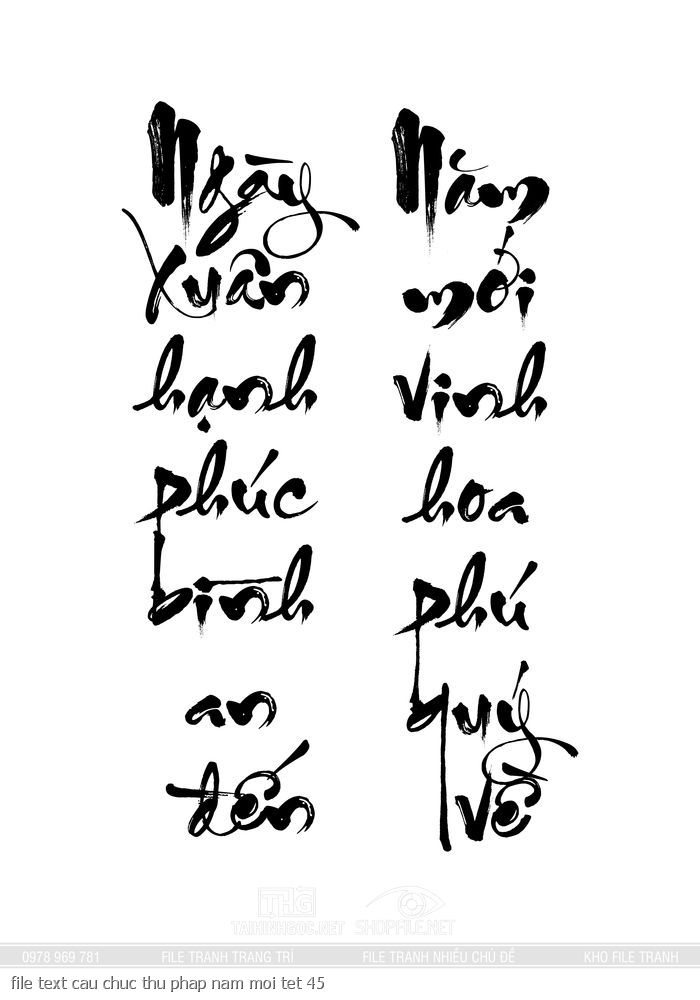 Ngày
Xuân
hạnh
phúc
bình
an
đến
Năm
mới
vinh
hoa
phú
quý
về
THG
TAIHINHGOC.NET
SHOPFILE.NET
0978 969 781
FILE TRANH TRANG TRÍ
FILE TRANH NHIỀU CHỦ ĐỀ
KHO FILE TRANH
file text cau chuc thu phap nam moi tet 45